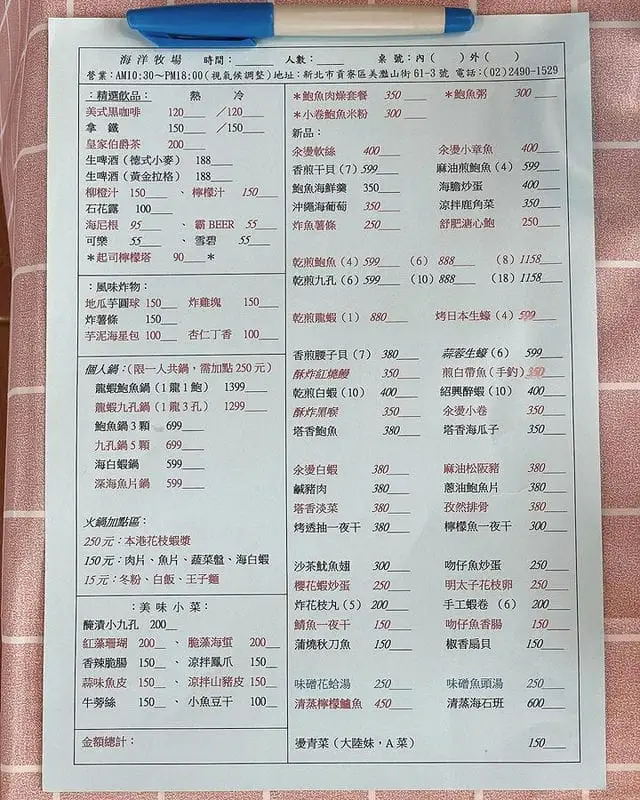 海洋牧場　時間：______　人數：______　桌號：內（　）外（　）
營業：AM10:30～PM18:00(視氣候調整)地址：新北市貢寮區美灩山街61-3號 電話：(02)2490-1529
：精選飲品：　熱　冷
美式黑咖啡　120___　／120___
拿鐵　150___　／150___
皇家伯爵茶　200___
生啤酒（德式小麥）　188___
生啤酒（黃金拉格）　188___
柳橙汁　150___、檸檬汁　150___
石花露　100___
海尼根　95___、霸BEER　55___
可樂　55___、雪碧　55___
＊起司檸檬塔　90___＊
：風味炸物：
地瓜芋圓球 150___　炸雞塊　150___
炸薯條　150___
芋泥海星包 100___　杏仁丁香　100___
個人鍋：(限一人共鍋，需加點250元)
龍蝦鮑魚鍋（1龍1鮑）　1399___
龍蝦九孔鍋（1龍3孔）　1299___
鮑魚鍋3顆　699___
九孔鍋5顆　699___
海白蝦鍋　599___
深海魚片鍋　599___
火鍋加點區：
250元：本港花枝蝦漿
150元：肉片、魚片、蔬菜盤、海白蝦
15元：冬粉、白飯、王子麵
：美味小菜：
醃漬小九孔　200__
紅藻珊瑚　200__、脆藻海蜇　200__
香辣脆腸　150__、涼拌鳳爪　150__
蒜味魚皮　150__、涼拌山豬皮　150__
牛蒡絲　150__、小魚豆干　100__
金額總計：
＊鮑魚肉燥套餐　350___　＊鮑魚粥　300___
＊小卷鮑魚米粉　300___
新品：
汆燙軟絲　400___　汆燙小章魚　400___
香煎干貝（7）599___　麻油煎鮑魚（4）599___
鮑魚海鮮羹　350___　海膽炒蛋　400___
沖繩海葡萄　350___　涼拌鹿角菜　350___
炸魚薯條　250___　舒肥溏心鮑　250___
乾煎鮑魚（4）599___　（6）888___　（8）1158___
乾煎九孔（6）599___　（10）888___　（18）1158___
乾煎龍蝦（1）880___　烤日本生蠔（4）599___
香煎腰子貝（7）380___　蒜蓉生蠔（6）599___
酥炸紅燒鰻　350___　煎白帶魚（手釣）350___
乾煎白蝦（10）400___　紹興醉蝦（10）400___
酥炸黑喉　350___　汆燙小卷　350___
塔香鮑魚　380___　塔香海瓜子　350___
汆燙白蝦　380___　麻油松阪豬　380___
鹹豬肉　380___　蔥油鮑魚片　380___
塔香淡菜　380___　孜然排骨　380___
烤透抽一夜干　380___　檸檬魚一夜干　300___
沙茶魷魚翅　300___　吻仔魚炒蛋　250___
櫻花蝦炒蛋　250___　明太子花枝卵　250___
炸花枝丸（5）200___　手工蝦卷（6）200___
鯖魚一夜干　150___　吻仔魚香腸　150___
蒲燒秋刀魚　150___　椒香扇貝　150___
味磳花蛤湯　250___　味磳魚頭湯　250___
清蒸檸檬鱸魚　450___　清蒸海石斑　600___
燙青菜（大陸妹，A菜）　150___